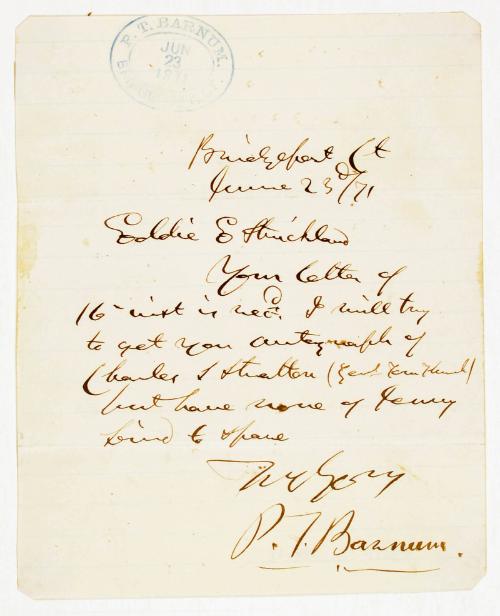 P. T. BARNUM.
JUN
23
1871
Bridgeport Ct
June 23d/71
Eddie E Strickland
Your letter of
16 inst is recd. I will try
to get you autograph of
Charles S Stratton (Genl Tom Thumb)
but have none of Jenny
Lind to spare
P. T. Barnum.